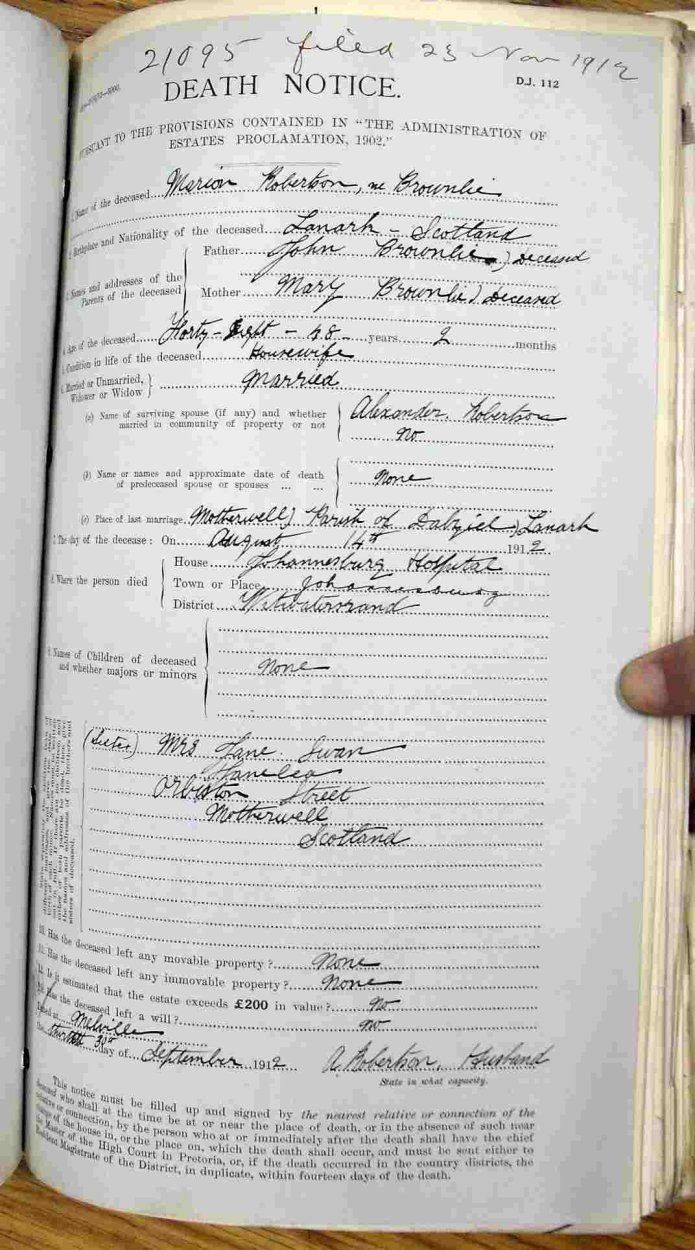 21095 filed 23 Nov 1912
DEATH NOTICE.
D.J. 112
PURSUANT TO THE PROVISIONS CONTAINED IN "THE ADMINISTRATION OF
ESTATES PROCLAMATION, 1902."
1. Name of the deceased Marion Robertson, ne Brownlie
2. Birthplace and Nationality of the deceased Lanark - Scotland
3. Names and addresses of the Parents of the deceased
Father John Brownlie) deceased
Mother Mary Brownlie) deceased
4. Age of the deceased Forty-Eight - 48 - years 2 months
5. Condition in life of the deceased Housewife
6. Married or Unmarried,
Widower or Widow } Married
(a) Name of surviving spouse (if any) and whether Alexander Robertson
married in community of property or not No
(b) Name or names and approximate date of death
of predeceased spouse or spouses ... ... None
(c) Place of last marriage Motherwell) Parish of Dalziel) Lanark
7. The day of the decease: On August 14th 1912
8. Where the person died
House Johannesburg Hospital
Town or Place Johannesburg
District Witwatersrand
9. Names of Children of deceased
and whether majors or minors None
(Sister) Mrs Jane Swan
Orbiston Street
Motherwell
Scotland
10. Has the deceased left any movable property? None
11. Has the deceased left any immovable property? None
12. Is it estimated that the estate exceeds £200 in value? No
13. Has the deceased left a will? No
Dated at Melville
the 30th day of September 1912 A. Robertson, Husband
State in what capacity.
This notice must be filled up and signed by the nearest relative or connection of the
deceased who shall at the time be at or near the place of death, or in the absence of such near
relative or connection, by the person who at or immediately after the death shall have the chief
charge of the house in, or the place on, which the death shall occur, and must be sent either to
the Master of the High Court in Pretoria, or, if the death occurred in the country districts, the
Resident Magistrate of the District, in duplicate, within fourteen days of the death.